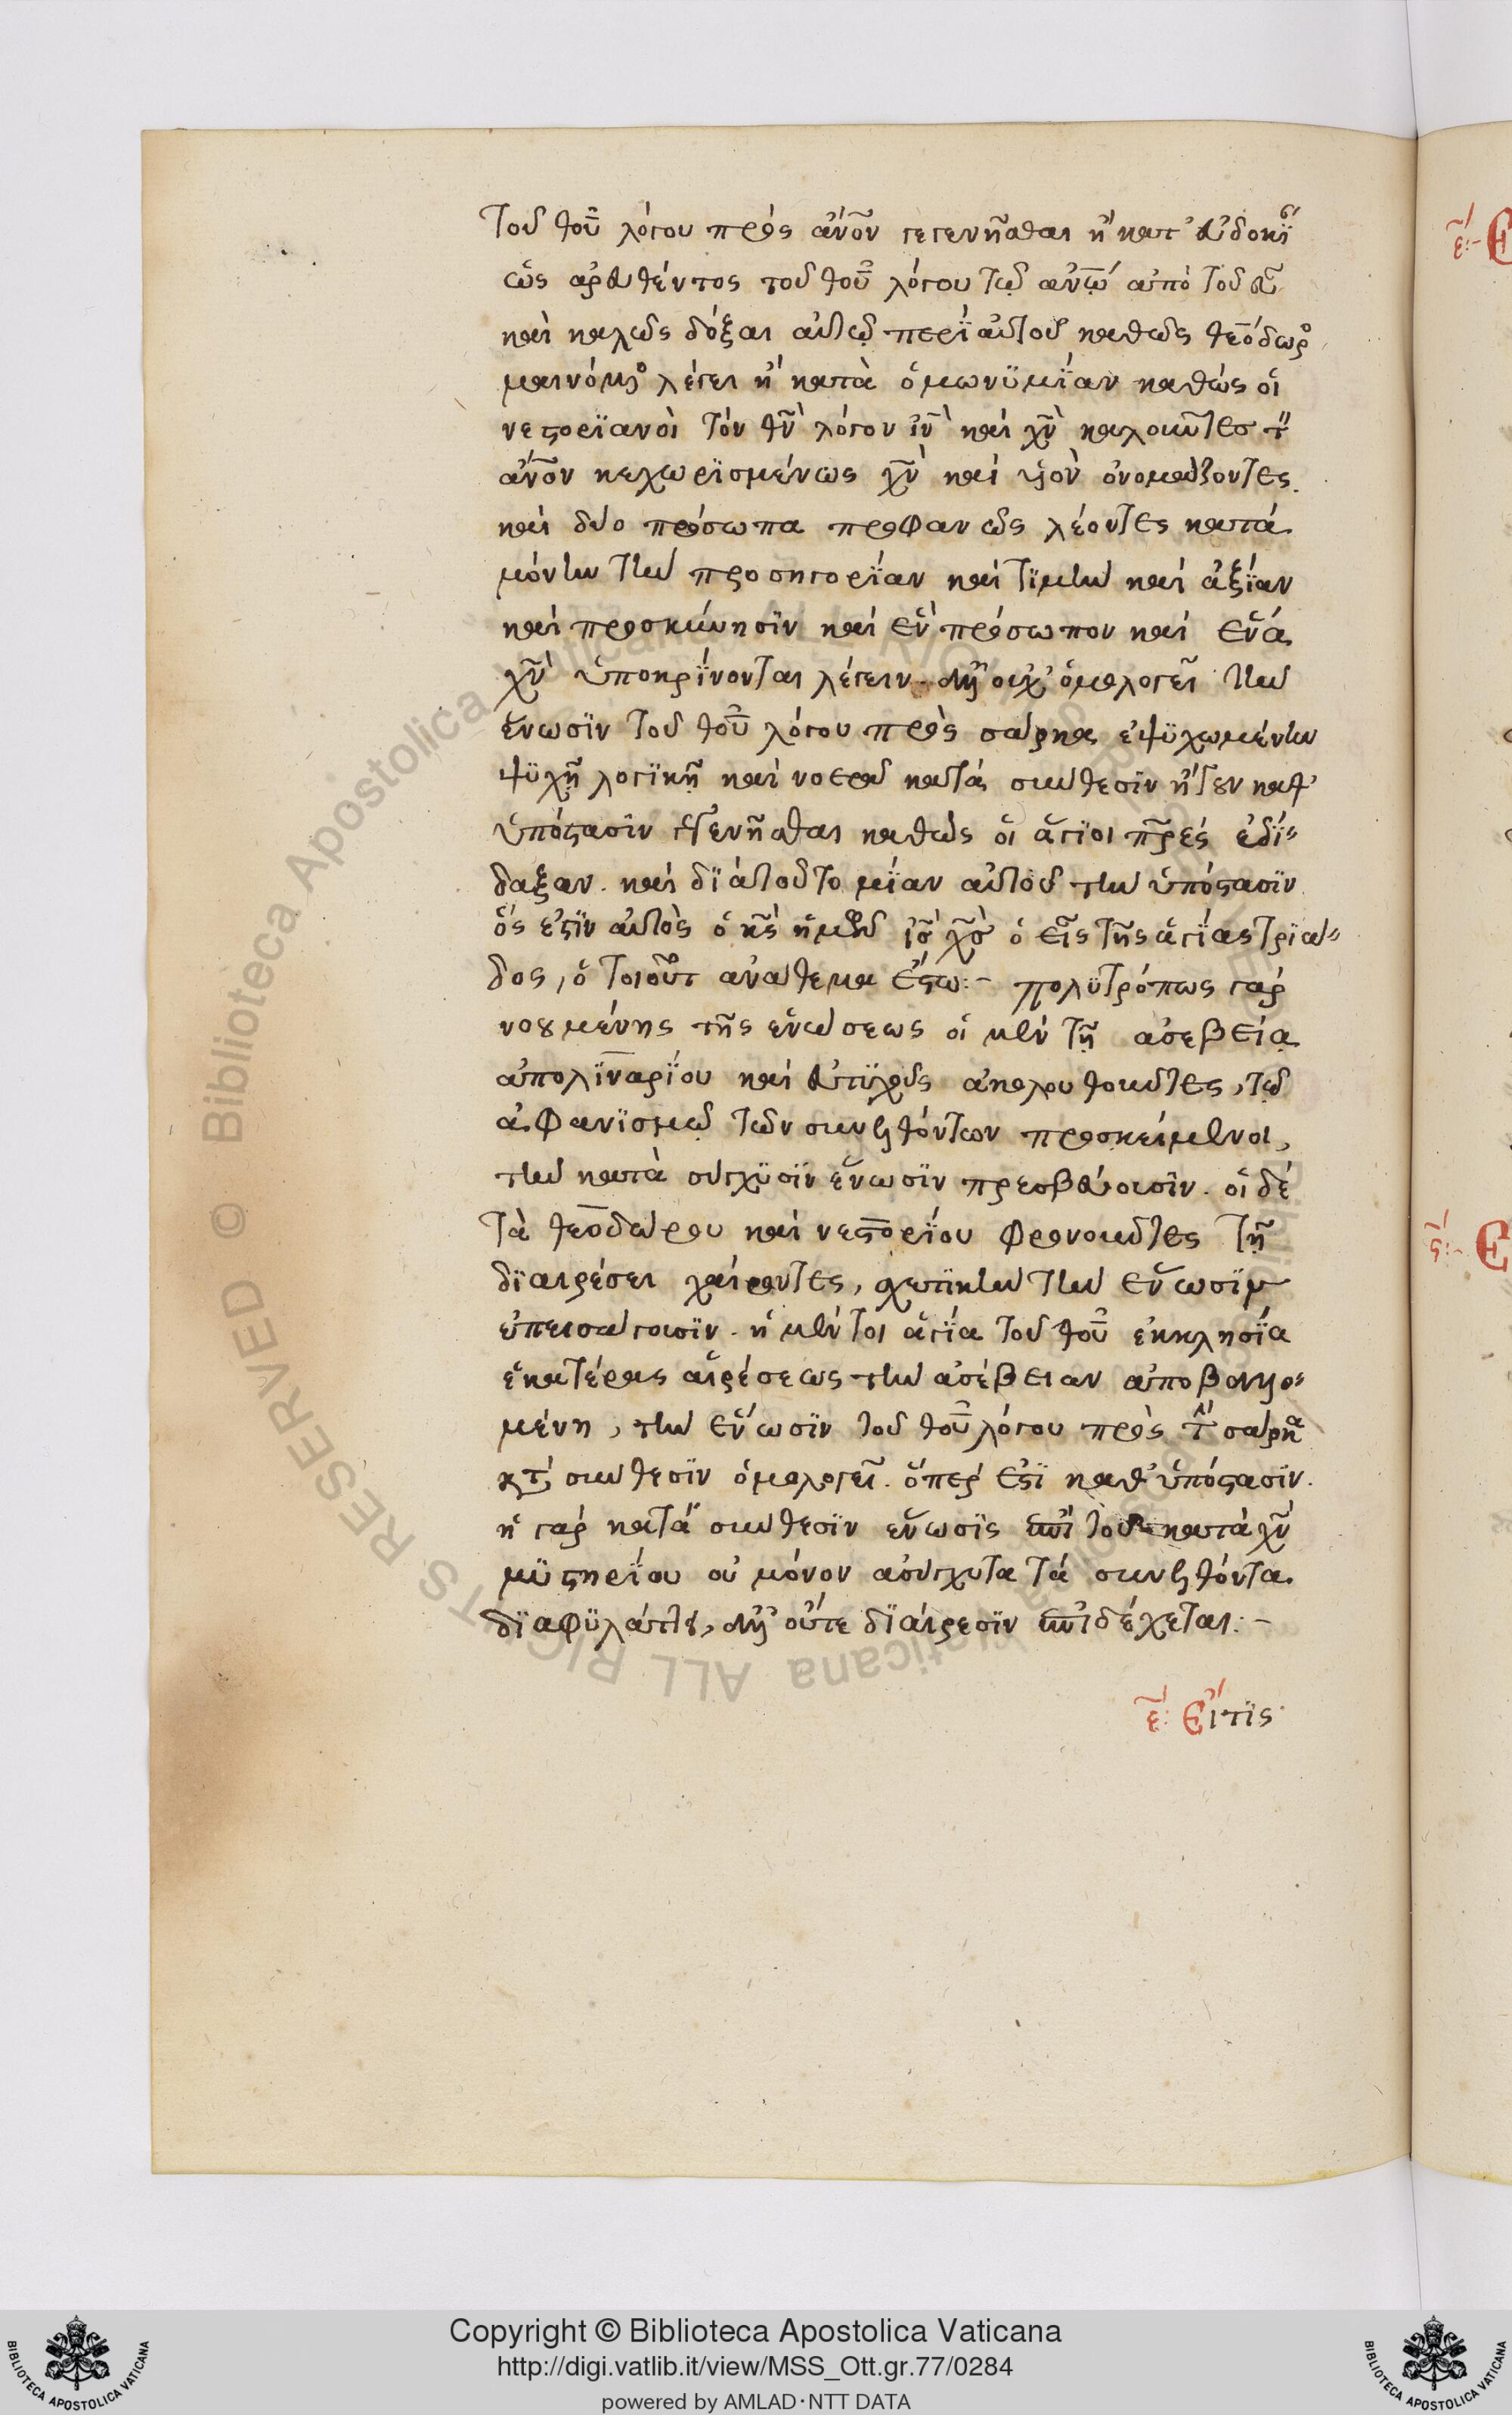 τοῦ θοῦ λόγου πρὸς ἄνον γεγενῆσθαι ἢ κατ' εὐδοκί
ὡς ἀρεσθέντος τοῦ θοῦ λόγου τῷ ἀνῶ ἀπὸ τοῦ εὖ
καὶ καλῶς δόξαι αὐτῷ περὶ αὐτοῦ καθὼς θεόδωρο
μαινόμο λέγει ἢ κατὰ ὁμωνϋμίαν καθὼς οἱ
νεστοριανοὶ τὸν θν λόγον ιν καὶ χν καλοῦντες τ
ἄνον κεχωρϊσμένως χν καὶ υἱὸν ὀνομάζοντες.
καὶ δύο πρόσωπα προφανῶς λέοντες κατὰ
μόνην τὴν προσηγορίαν καὶ τϊμὴν καὶ ἀξίαν
καὶ προσκύνησϊν καὶ ἓν πρόσωπον καὶ ἕνα
χν ὑποκρίνονται λέγειν. ἀλλ' οὐχ' ὁμολογεῖ τὴν
ἕνωσϊν τοῦ θοῦ λόγου πρὸς σάρκα ἐψϋχωμένην
ψϋχῇ λογϊκῇ καὶ νοερᾷ κατὰ σύνθεσϊν ἤγουν καθ'
ὑπόστασϊν γεγενῆσθαι καθὼς οἱ ἅγϊοι πρες ἐδί-
δαξαν. καὶ δϊὰ τοῦτο μίαν αὐτοῦ τὴν ὑπόστασϊν
ὅς ἐστϊν αὐτὸς ὁ κς ἡμῶν ις χς ὁ εἷς τῆς ἁγίας τρϊά-
δος, ὁ τοιοῦτ ἀνάθεμα ἔστω:- πολϋτρόπως γὰρ
νοουμένης τῆς ἑνώσεως οἱ μὲν τῇ ἀσεβείᾳ
ἀπολϊναρίου καὶ εὐτϋχοῦς ἀκολουθοῦντες, τῷ
ἀφανϊσμῷ τῶν συνελθόντων προσκείμενοι,
τὴν κατὰ σύγχϋσϊν ἕνωσϊν πρεσβεύουσϊν. οἱ δὲ
τὰ θεοδώρου καὶ νεστορίου φρονοῦντες τῇ
δϊαιρέσει χαίροντες, σχετϊκὴν τὴν ἕνωσϊν
ἐπεισάγουσϊν. ἡ μέντοι ἁγία τοῦ θοῦ ἐκκλησία
ἑκατέρας αἱρέσεως τὴν ἀσέβειαν ἀποβαλλο-
μένη, τὴν ἕνωσϊν τοῦ θοῦ λόγου πρὸς τ σάρκα
κτ σύνθεσϊν ὁμολογεῖ. ὅπερ ἐστὶ καθ' ὑπόστασϊν.
ἡ γὰρ κατὰ σύνθεσϊν ἕνωσϊς ἐπὶ τοῦ κατὰ χν
μϋστηρίου οὐ μόνον ἀσύγχυτα τὰ συνελθόντα
δϊαφϋλάττει, ἀλλ' οὔτε δϊαίρεσϊν ἐπιδέχεται:-
ε: Εἴ τϊς
Copyright © Biblioteca Apostolica Vaticana
http://digi.vatlib.it/view/MSS_Ott.gr.77/0284
powered by AMLAD·NTT DATA